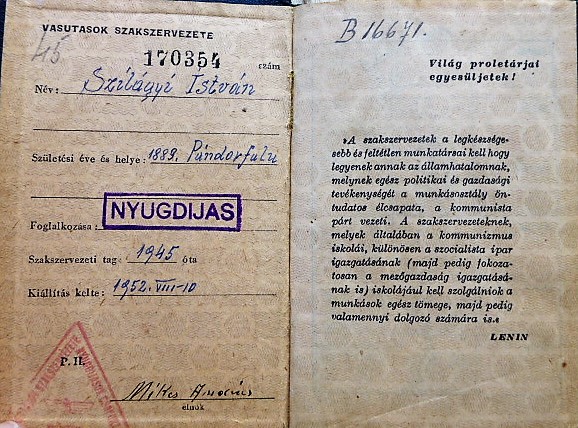 VASUTASOK SZAKSZERVEZETE
45
170354 szám
Név: Szilágyi István
Születési éve és helye: 1889. Pándorfalu
NYUGDIJAS
Foglalkozása:
Szakszervezeti tag: 1945 óta
Kiállítás kelte: 1952. VIII-10
P. H.
Mikes
elnök
B 16671.
Világ proletárjai
egyesüljetek!
»A szakszervezetek a legkészsége-
sebb és feltétlen munkatársai kell hogy
legyenek annak az államhatalomnak,
melynek egész politikai és gazdasági
tevékenységét a munkásosztály ön-
tudatos élcsapata, a kommunista
párt vezeti. A szakszervezeteknek,
melyek általában a kommunizmus
iskolái, különösen a szocialista ipar
igazgatásának (majd pedig fokoza-
tosan a mezőgazdaság igazgatásá-
nak is) iskolájául kell szolgálniok a
munkások egész tömege, majd pedig
valamennyi dolgozó számára is.«
LENIN